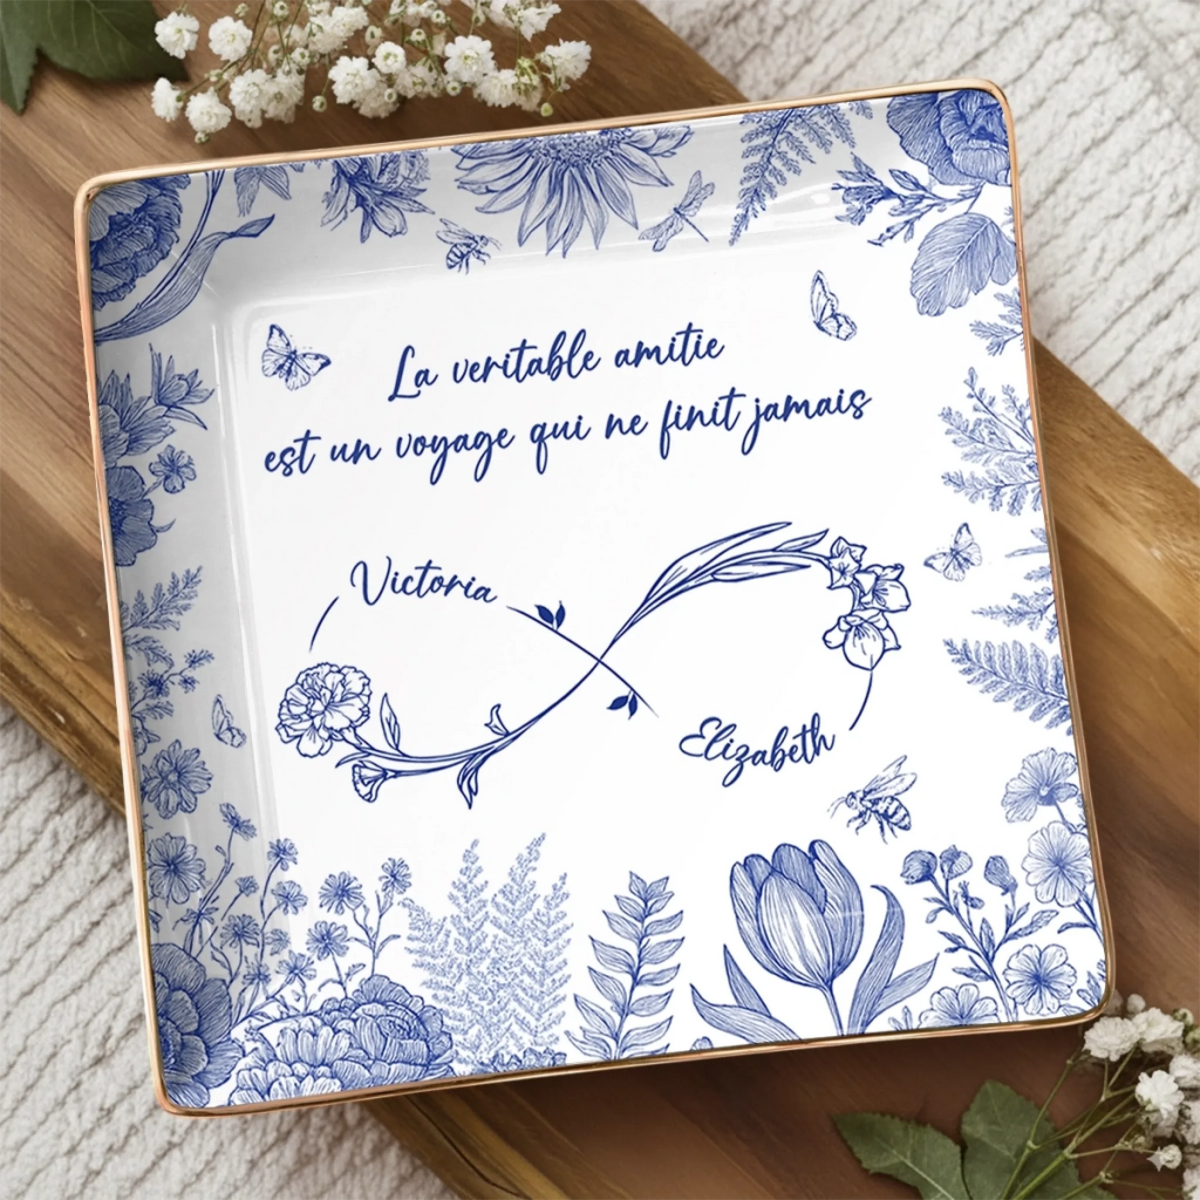 La veritable amitie
est un voyage qui ne finit jamais
Victoria
Elizabeth